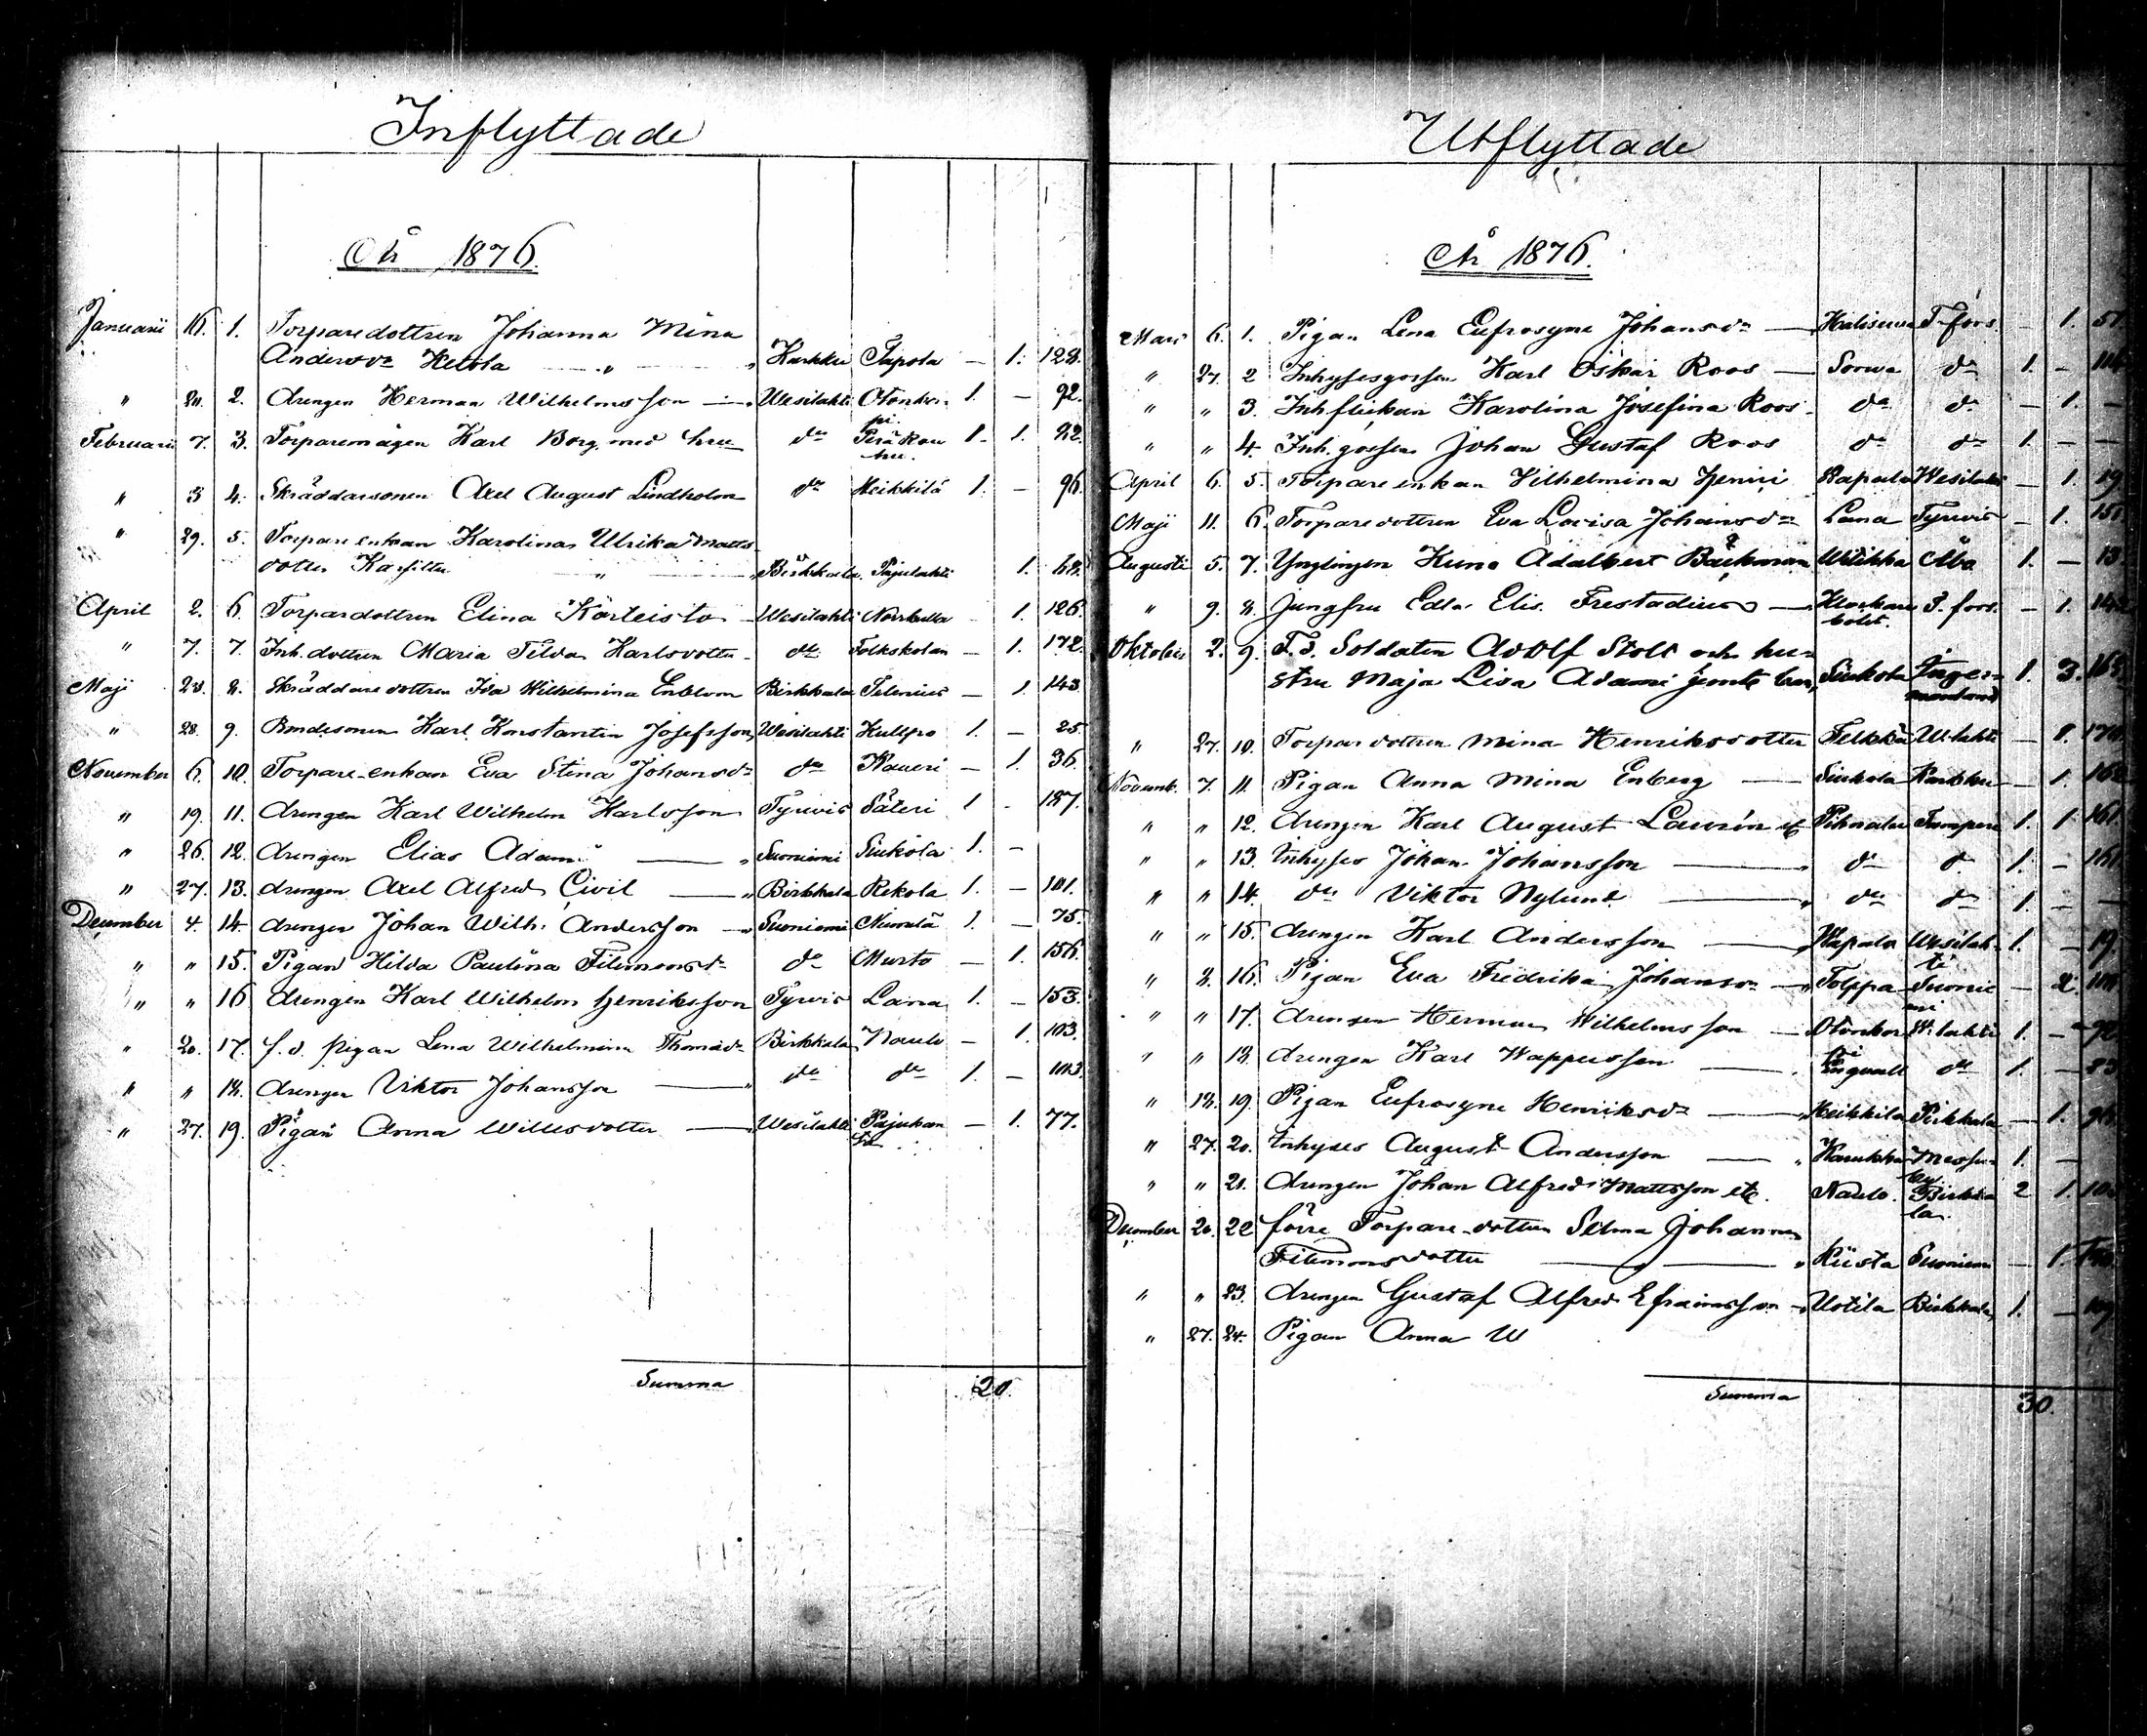 Inflyttade
År 1876.
Januarii 16. 1. Torparedottren Johanna Mina
Andersdr Ketola " Karkku Tapola — 1. 128.
" 20. 2. Drengen Herman Wilhelmsson — Wesilahti Otonkor- 1. — 92.
pi.
Februarii 7. 3. Torparemågen Karl Borg med hru — do Perä Kou 1. 1. 22.
hu.
" 3 4. Skräddarsonen Axel August Lindholm do Heikkilä 1. — 96.
" 29. 5. Torpare enkan Karolina Ulrika Matts
dotter " Birkkala. Pajulahti 1. 68.
April 2. 6. Torpardottren Elina Körteisto Wesilahti 1. 126.
" 7. 7. Inh. dottren Maria Tilda Karlsdotter do Folkskolan — 1. 172.
Maji 23. 8. Skräddare dottren Ida Wilhelmina Enblom Birkkala — 1. 143
" 28. 9. Bondesonen Karl Konstantin Josefsson, Wesilahti Kullpo 1. — 25.
November 6. 10. Torpare-enkan Eva Stina Johansdr do Kaueri — 1. 36.
" 19. 11. drengen Karl Wilhelm Karlsson Tyrvis Säteri 1 - 187.
" 26. 12. drengen Elias Adami — Suoniemi Siukola 1. —
" 27. 13. drengen Axel Alfred Civil — Birkkala Rekola 1. — 101.
December 4. 14. drengen Johan Wilh. Andersson — Suoniemi 1. — 75.
" " 15. Pigan Hilda Paulina Filemonsdr do Murto — 1. 156.
" " 16 drengen Karl Wilhelm Henriksson Tyrvis Lana 1. — 153.
" 20. 17. f. d. pigan Lena Wilhelmina Thomasdr Birkkala Naulo — 1. 103.
" " 18. drengen Viktor Johansson — do do 1. — 103.
" 27. 19. Pigan Anna Willesdotter — Wesilahti Pajukan — 1. 77.
Summa 20.
Utflyttade
År 1876.
Mars 6. 1. Pigan Lena Eufrosyne Johansdr — T-fors. — 1. 51.
" 27. 2 Inhysesgossen Karl Oskar Roos — Sorwa do 1. —
" " 3. Inh flickan Karolina Josefina Roos — do do — 1. —
" " 4. Inh. gossen Johan Gustaf Roos do do 1. — —
April 6. 5. Torpare enkan Vilhelmina Henrici Wapalo Wesilahti — 1. 19.
Maji 11. 6. Torparedottren Eva Lovisa Johansdr Lana Tyrvis — 1. 151
Augusti 5. 7. Ynglingen Kuno Adalbert Bäckman Wilikka Åbo 1. — 13.
" 9. 8. Jungfru Edla Elis. Frestadius — Klockare T. fors. — 1.
bolet.
Oktober 2. 9. F. d. Soldaten Adolf Stolt och hu-
stru Maja Lisa Adami jemte barn, Siukola Inger- 1. 3.
manland
" 27. 10. Torpar dottren Mina Henriksdotter W-lahti —
Novemb. 7. 11. Pigan Anna Mina Enberg — Siukola Karkku — 1. 162
" " 12. drengen Karl August Laurén Tampere 1. 1 161.
" " 13. Inhyses Johan Johansson — do do 1. — 161.
" " 14. do Viktor Nylund — do do 1. — —
" " 15. drengen Karl Andersson — Wapalo Wesilah- 1. — 19.
ti
" 8. 16. Pigan Eva Fredrika Johansdr — Tolppa Suonie — 2.
mi
" " 17. drengen Herman Wilhelmsson — Otonkor W. lahti 1. — 92
pi
" " 18. drengen Karl Wappusson — Ingvall do 1. — 83
" 18. 19. Pigan Eufrosyne Henriksdr — Heikkilä Pirkkala — 1. 96.
" 27. 20. Inhyses August Andersson — " Messu- 1. —
by
" " 21. drengen Johan Alfred Mattsson etc. Naulo. Birkka 2 1. 103
la.
December 20. 22 förre Torpare-dottren Selma Johanna
Filemonsdotter — " Riista Suoniemi — 1.
" " 23. drengen Gustaf Alfred Efraimsson — Uotila Birkkala, 1. — 109
" 27. 24. Pigan Anna W
Summa 30.